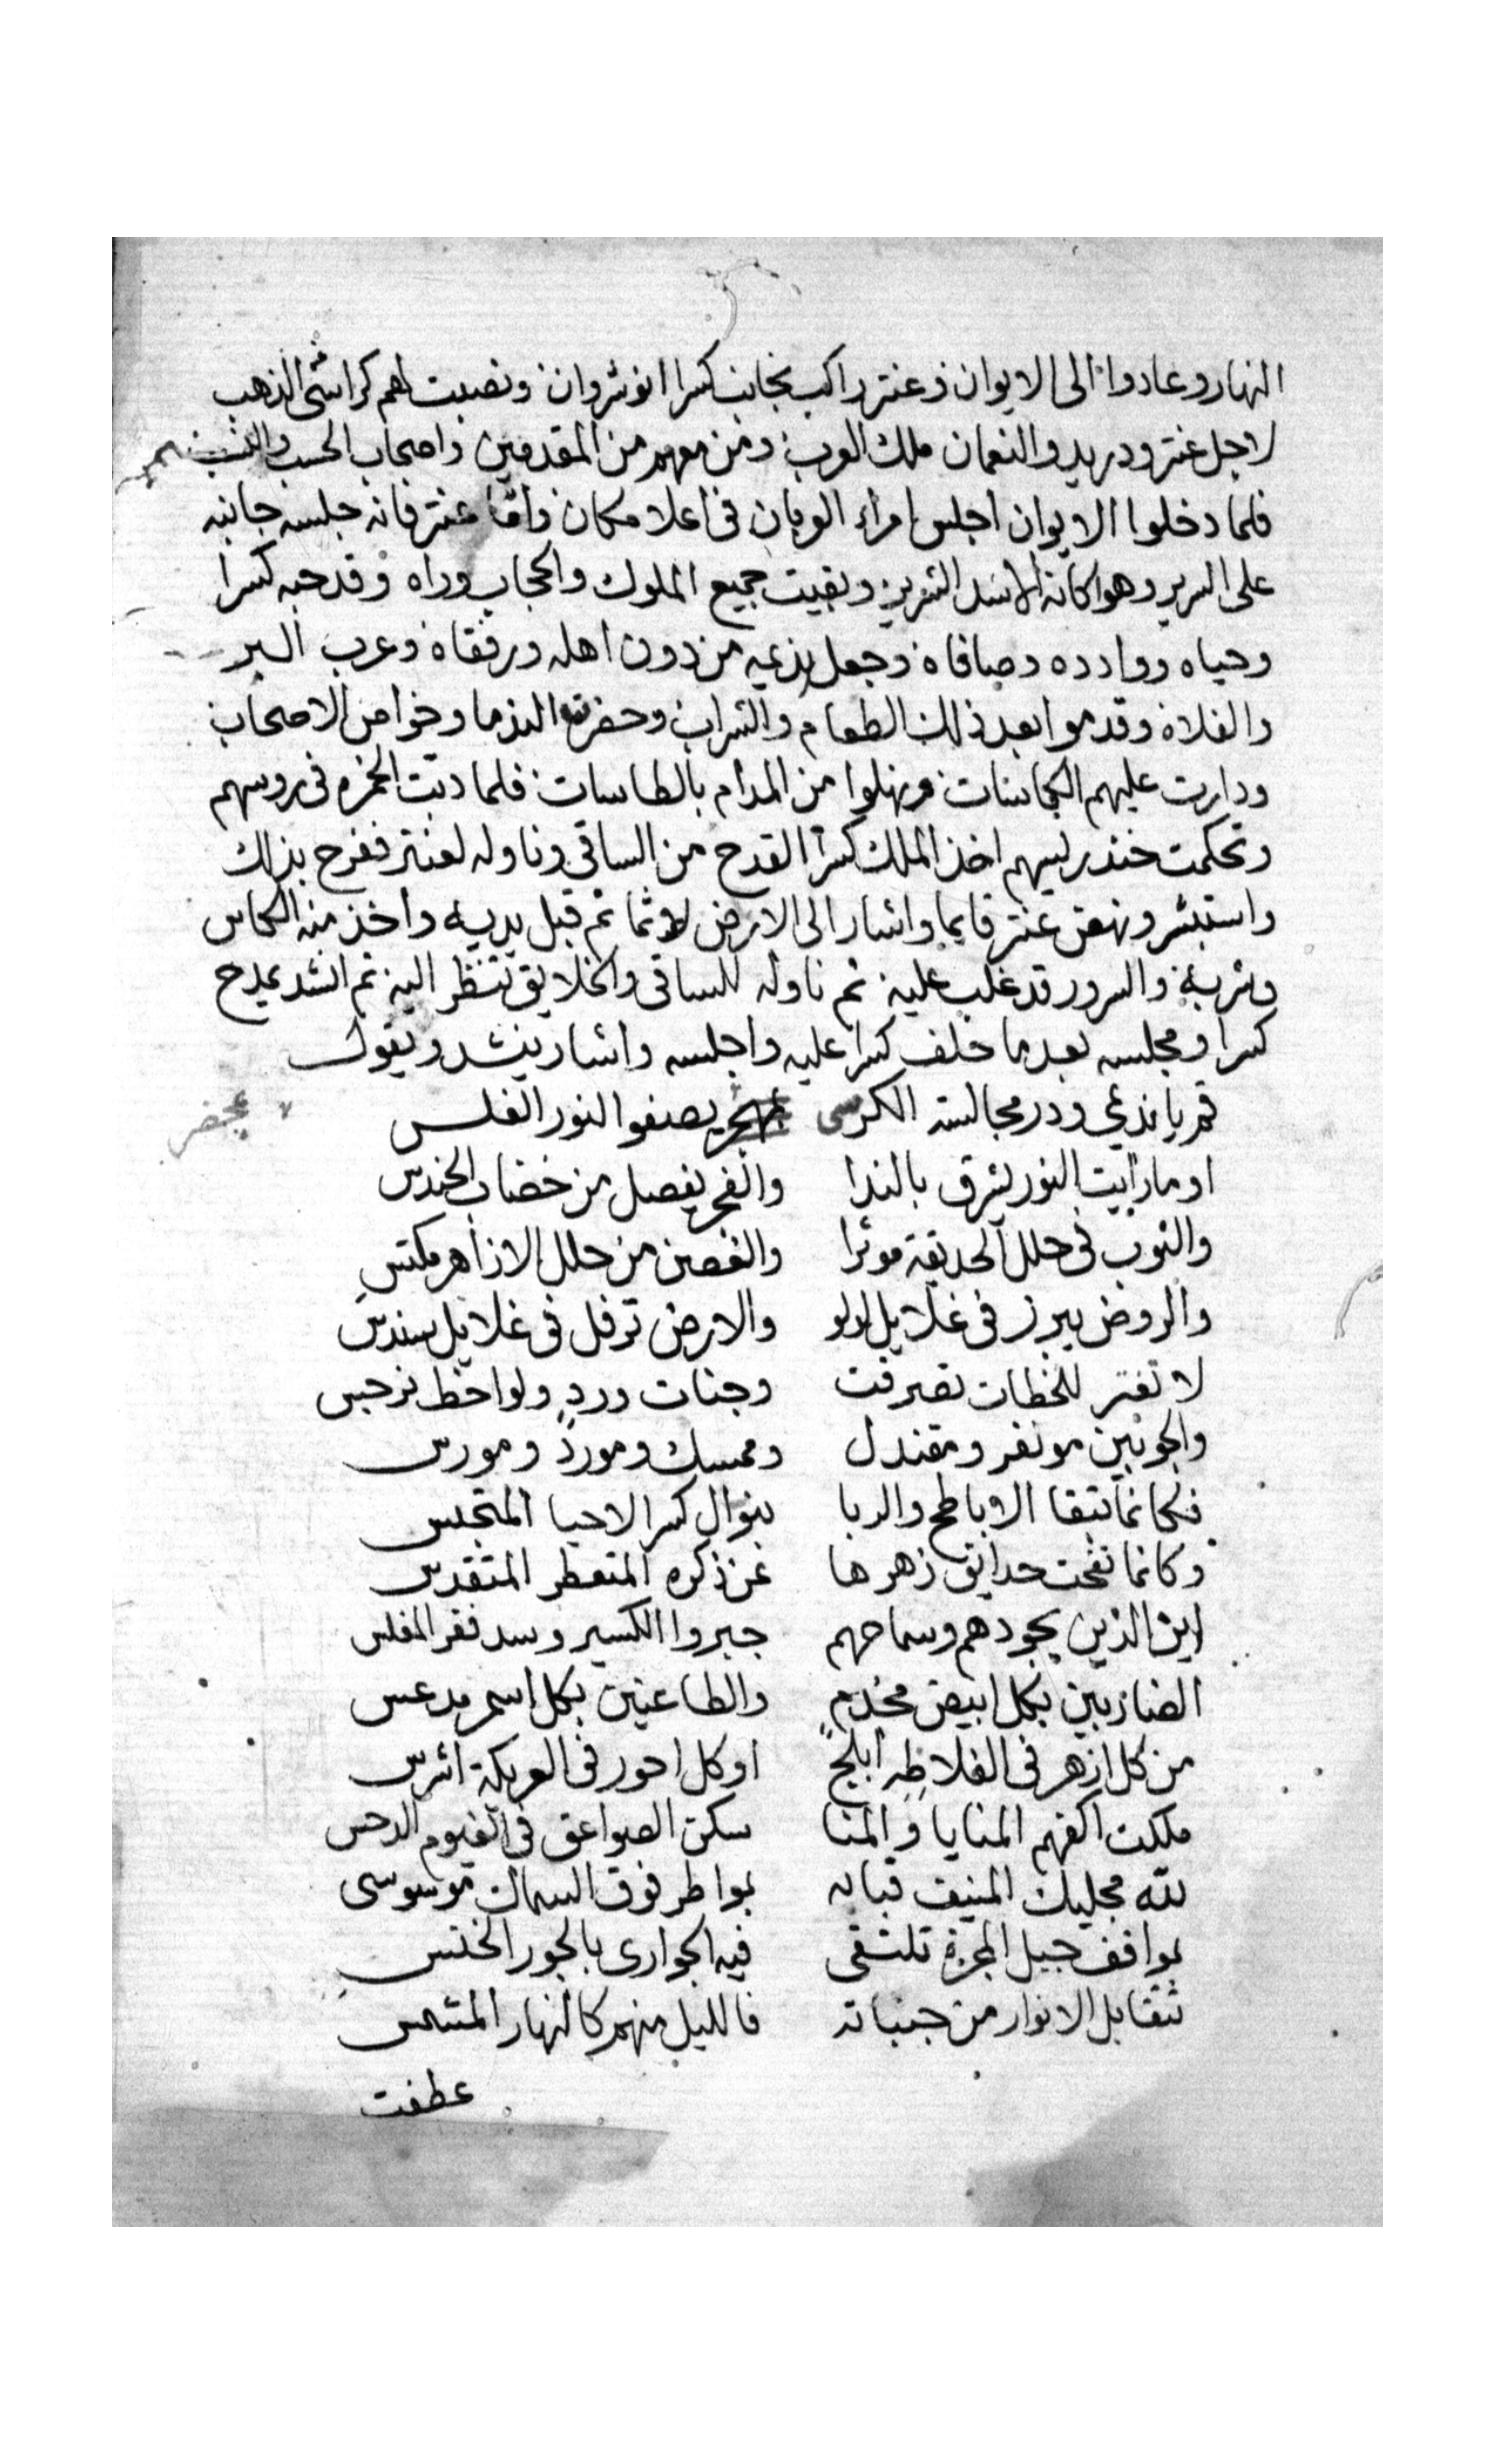 النهار وعادوا الى الايوان وعنتر راكب بجانب كسرا انوشروان ونصبت لهم كراسى الذهب
لاجل عنتر ودريد والنعمان ملك العرب ومن معهم من المقدمين واصحاب الحسب والنسب
فلما دخلوا الايوان اجلس امراء العربان فى اعلا مكان واما عنتر فانه جلسه جانبه
على السرير وهو اكانه الاسد وبقيت جميع الملوك والحجاب وراه وقد حبه كسرا
وحياه ووادده وصافاه وجعل نديمه من دون اهله ورفقاه وعرب البر
والفلاه وقدموا بعد ذلك الطعام والشراب وحضرت الندما وخواص الاصحاب
ودارت عليهم الكاسات ونهلوا من المدام بالطاسات فلما دبت الخمره فى روسهم
وتحكمت خندريسهم اخذ الملك كسرا القدح من الساقى وناوله لعنتر ففرح بذلك
واستبشر ونهض عنتر قايما واشار الى الارض لاثما ثم قبل يديه واخذ منه الكاس
وشربه والسرور قد غلب عليه ثم ناوله للساقى والخلايق تنظر اليه ثم انشد يمدح
كسرا ومجلسه بعدما حلف كسرا عليه واجلسه واشار ينشد ويقول
قم يا نديمى ودر مجالسة الكرسى يصفوا لنور الغلس
او ما رايت النور يشرق بالندا والفجر يفصل من خضاب الحندس
والنوب فى حلل الحديقة موثرا والغصن من حلل الازاهر مكتس
والروض يبرز فى غلايل لولو والارض ترفل فى غلايل سندس
لا تغتر للخطات تصرفت وجنات ورد ولواحظ نرجس
والجو بين مونفر ومقندل وممسك ومورد ومورس
فكانما تبقا الاباطح والربا بنوال كسرا لاحيا المتجبس
وكانما نفحت حدايق زهرها عن ذكره المتعطر المتقدس
اين الذين بجودهم وسماحهم جبروا الكسير وسد فقر المفلس
الضاربين بكل ابيض مخذم والطاعنين بكل اسمر مدعس
من كل ازهر فى الفلا ابلج او كل احور فى العريكة اشرس
ملكت اكفهم المنايا والمنا سكن الصواعق فى الغيوم الدحس
لله مجلسك المنيف قبابه بواطر فوق السماك موسوسى
بمواقف جبل المجرة تلتقى فيه الجوارى بالجور الخنس
تتقابل الانوار من جنباته فالليل منهم كالنهار المشمس
عطفت